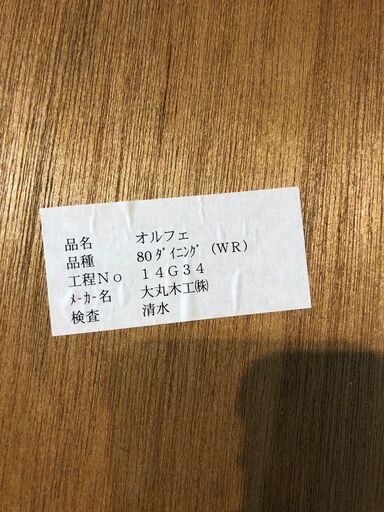 品名 オルフェ
品種 80ﾀﾞｲﾆﾝｸﾞ(WR)
工程No 14G34
ﾒｰｶｰ名 大丸木工㈱
検査 清水